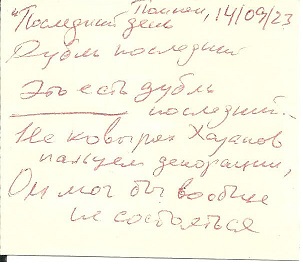 "Последний день Помпеи, 14/09/23
Дубль последний
Это есть дубль
последний..
Не ковырял Хазанов
пальцем декорации,
Он мог бы вообще
не состояться